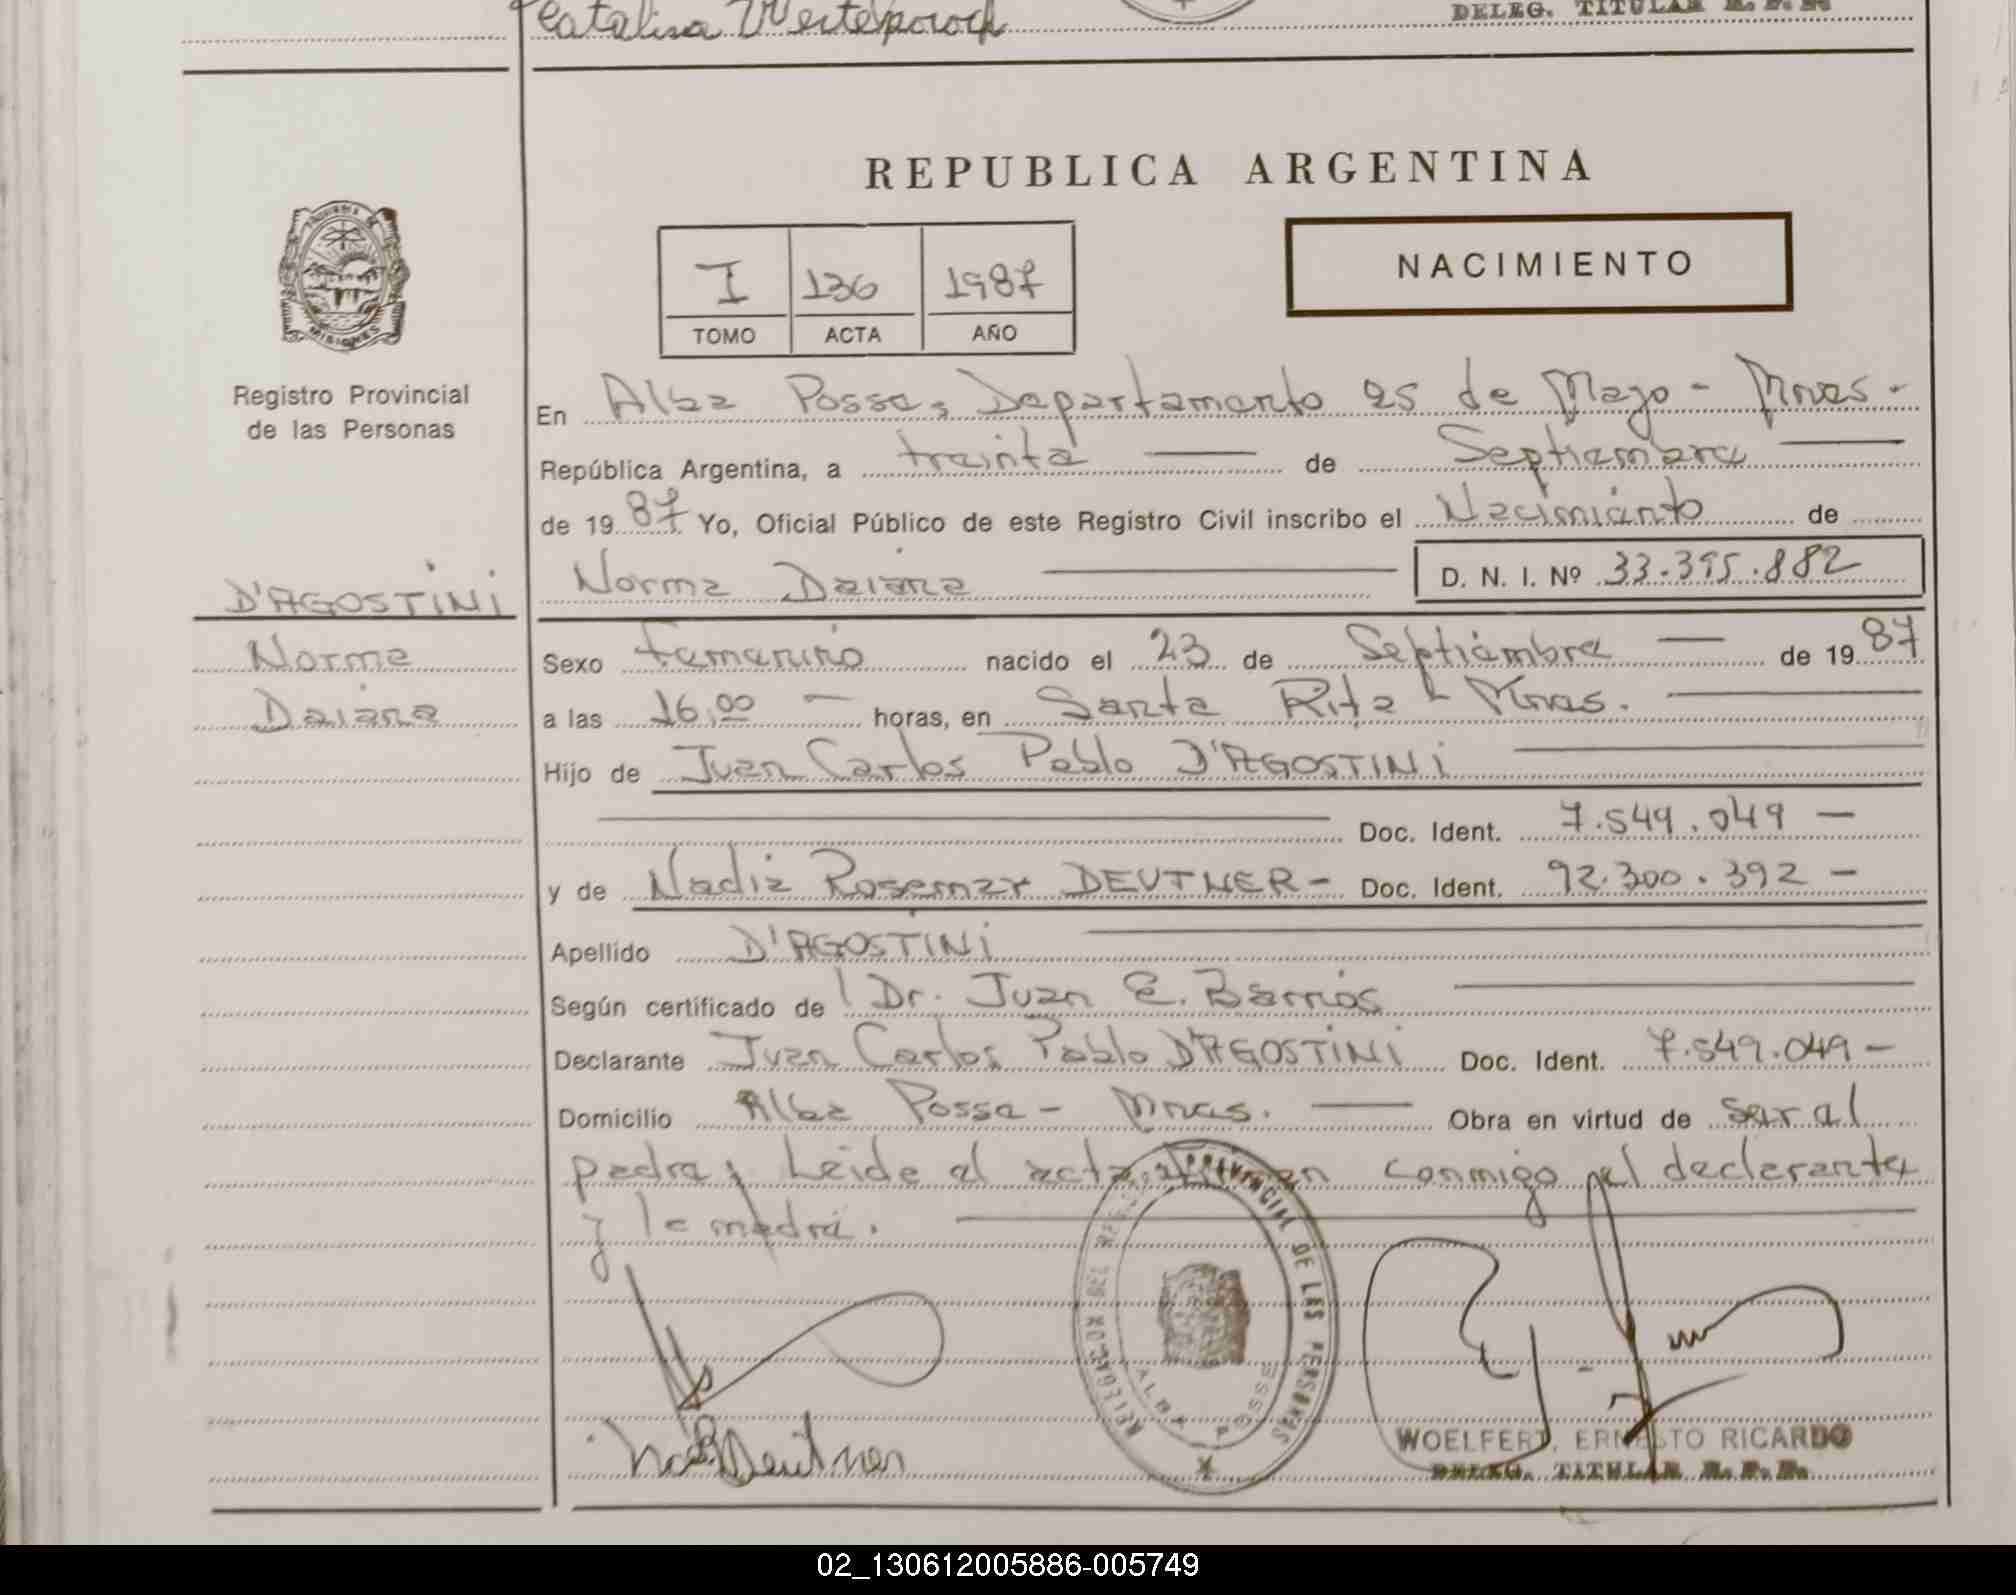 Catalina
DELEG. TITULAR R. P. P.
REPUBLICA ARGENTINA
NACIMIENTO
I 136 1987
TOMO ACTA AÑO
MISIONES
Registro Provincial
de las Personas
En Alba Posse, Departamento 25 de Mayo - Mnes.-
República Argentina, a treinta de Septiembre
de 19 87 Yo, Oficial Público de este Registro Civil inscribo el Nacimiento de
Norma Daiana D. N. I. Nº 33.395.882
D'AGOSTINI
Norma
Daiana
Sexo femenino nacido el 23 de Septiembre de 19 87
a las 16,00 horas, en Santa Rita - Mnes.
Hijo de Juan Carlos Pablo D'AGOSTINI
Doc. Ident. 7.549.049 -
y de Nadia Rosemar DEUTNER - Doc. Ident. 92.300.392 -
Apellido D'AGOSTINI
Según certificado de Dr. Juan E. Barrios
Declarante Juan Carlos Pablo D'AGOSTINI Doc. Ident. 7.549.049 -
Domicilio Alba Posse - Mnes. Obra en virtud de ser al
padre; Leida el acta, firman conmigo el declarante
y la madre.
DELEGACION DEL REGISTRO PROVINCIAL DE LAS PERSONAS
ALBA POSSE
Deutner
WOELFERT, ERNESTO RICARDO
DELEG. TITULAR R. P. P.
02_130612005886-005749